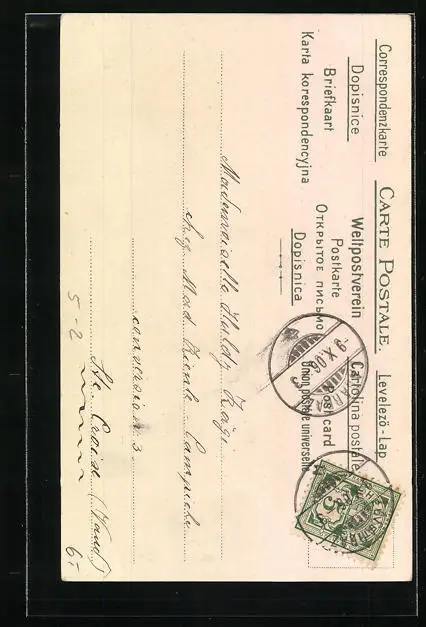 Correspondenzkarte CARTE POSTALE. Levelező-Lap
Dopisnice Weltpostverein Cartolina postale
Briefkaart Postkarte Post card
Karta korespondencyjna ОТКРЫТОЕ ПИСЬМО Union postale universelle
Dopisnica
-9.X.06
5
Mademoiselle Huldy Kägi
chez Mad.
Campiche
3
Ste. Croix (Vaud)
5-2
6.-